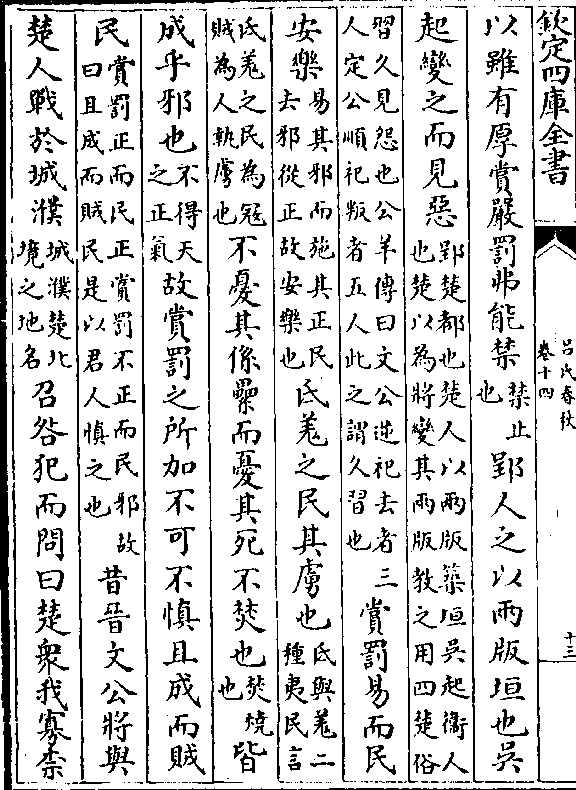 欽定四庫全書
呂氏春秋
卷十四
十三
以雖有厚賞嚴罰弗能禁禁止也郢人之以兩版垣也吳
起變之而見惡郢楚都也楚人以兩版築垣吳起衞人也楚以為將變其兩版教之用四楚俗
習久見怨也公羊傳曰文公逆祀去者三人定公順祀叛者五人此之謂久習也賞罰易而民
安樂易其邪而施其正民去邪從正故安樂也氐羌之民其虜也氐與羌二種夷民言
氐羌之民為冦賊為人執虜也不憂其係纍而憂其死不焚也焚燒也皆
成乎邪也不得天之正氣故賞罰之所加不可不慎且成而賊
民賞罰正而民正賞罰不正而民邪故曰且成而賊民是以君人慎之也昔晉文公將與
楚人戰於城濮城濮楚北境之地名召咎犯而問曰楚衆我寡柰